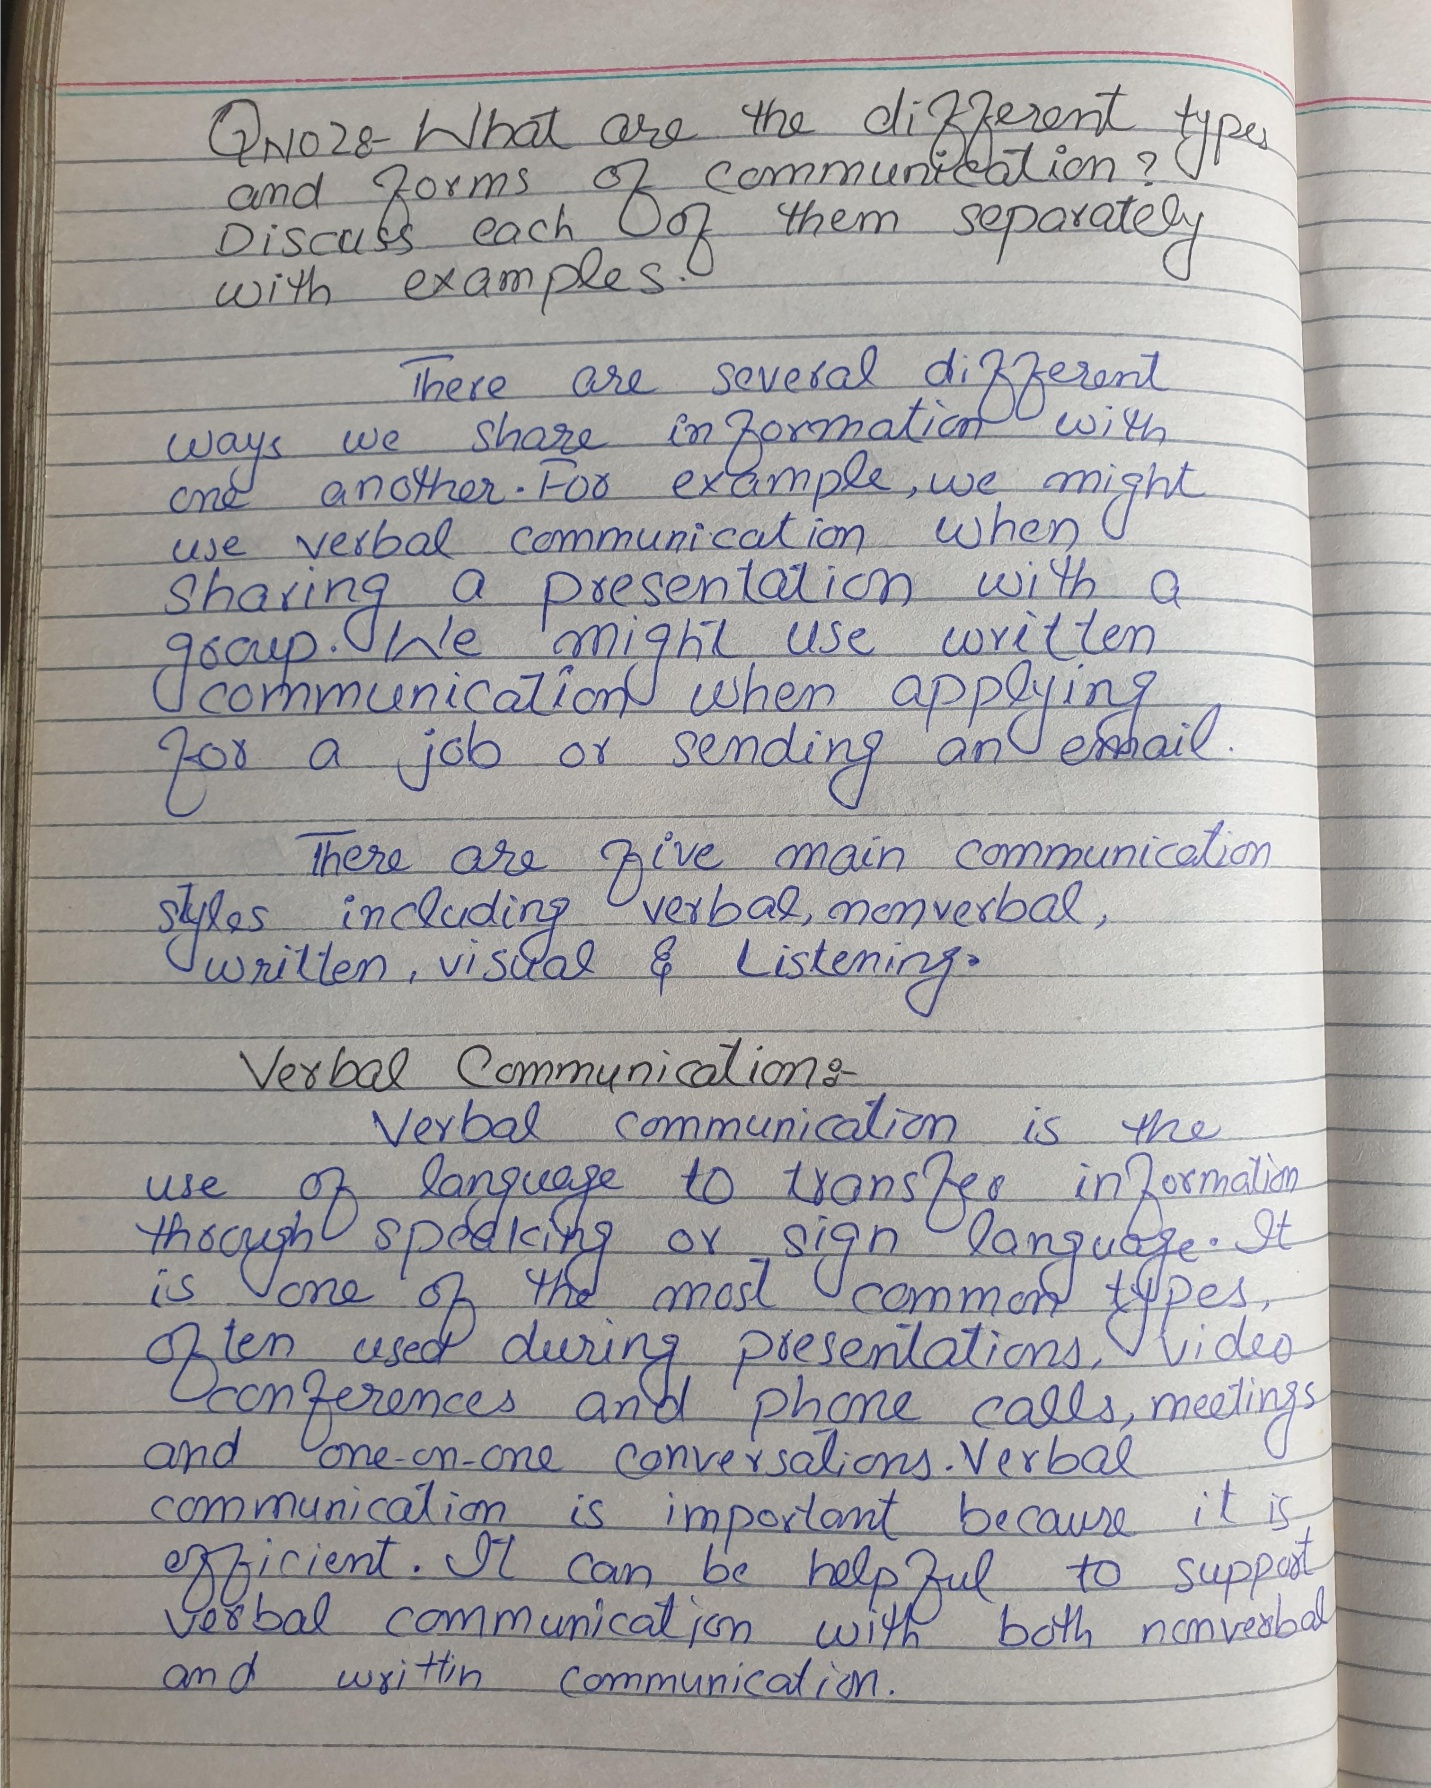 QNO2:- What are the different types
and forms of communication?
Discuss each of them separately
with examples.
There are several different
ways we share information with
one another. For example, we might
use verbal communication when
sharing a presentation with a
group. We might use written
communication when applying
for a job or sending an email.
There are five main communication
styles including verbal, nonverbal,
written, visual & Listening.
Verbal Communication:-
Verbal communication is the
use of language to transfer information
through speaking or sign language. It
is one of the most common types,
often used during presentations, video
conferences and phone calls, meetings
and one-on-one conversations. Verbal
communication is important because it is
efficient. It can be helpful to support
verbal communication with both nonverbal
and writtin communication.